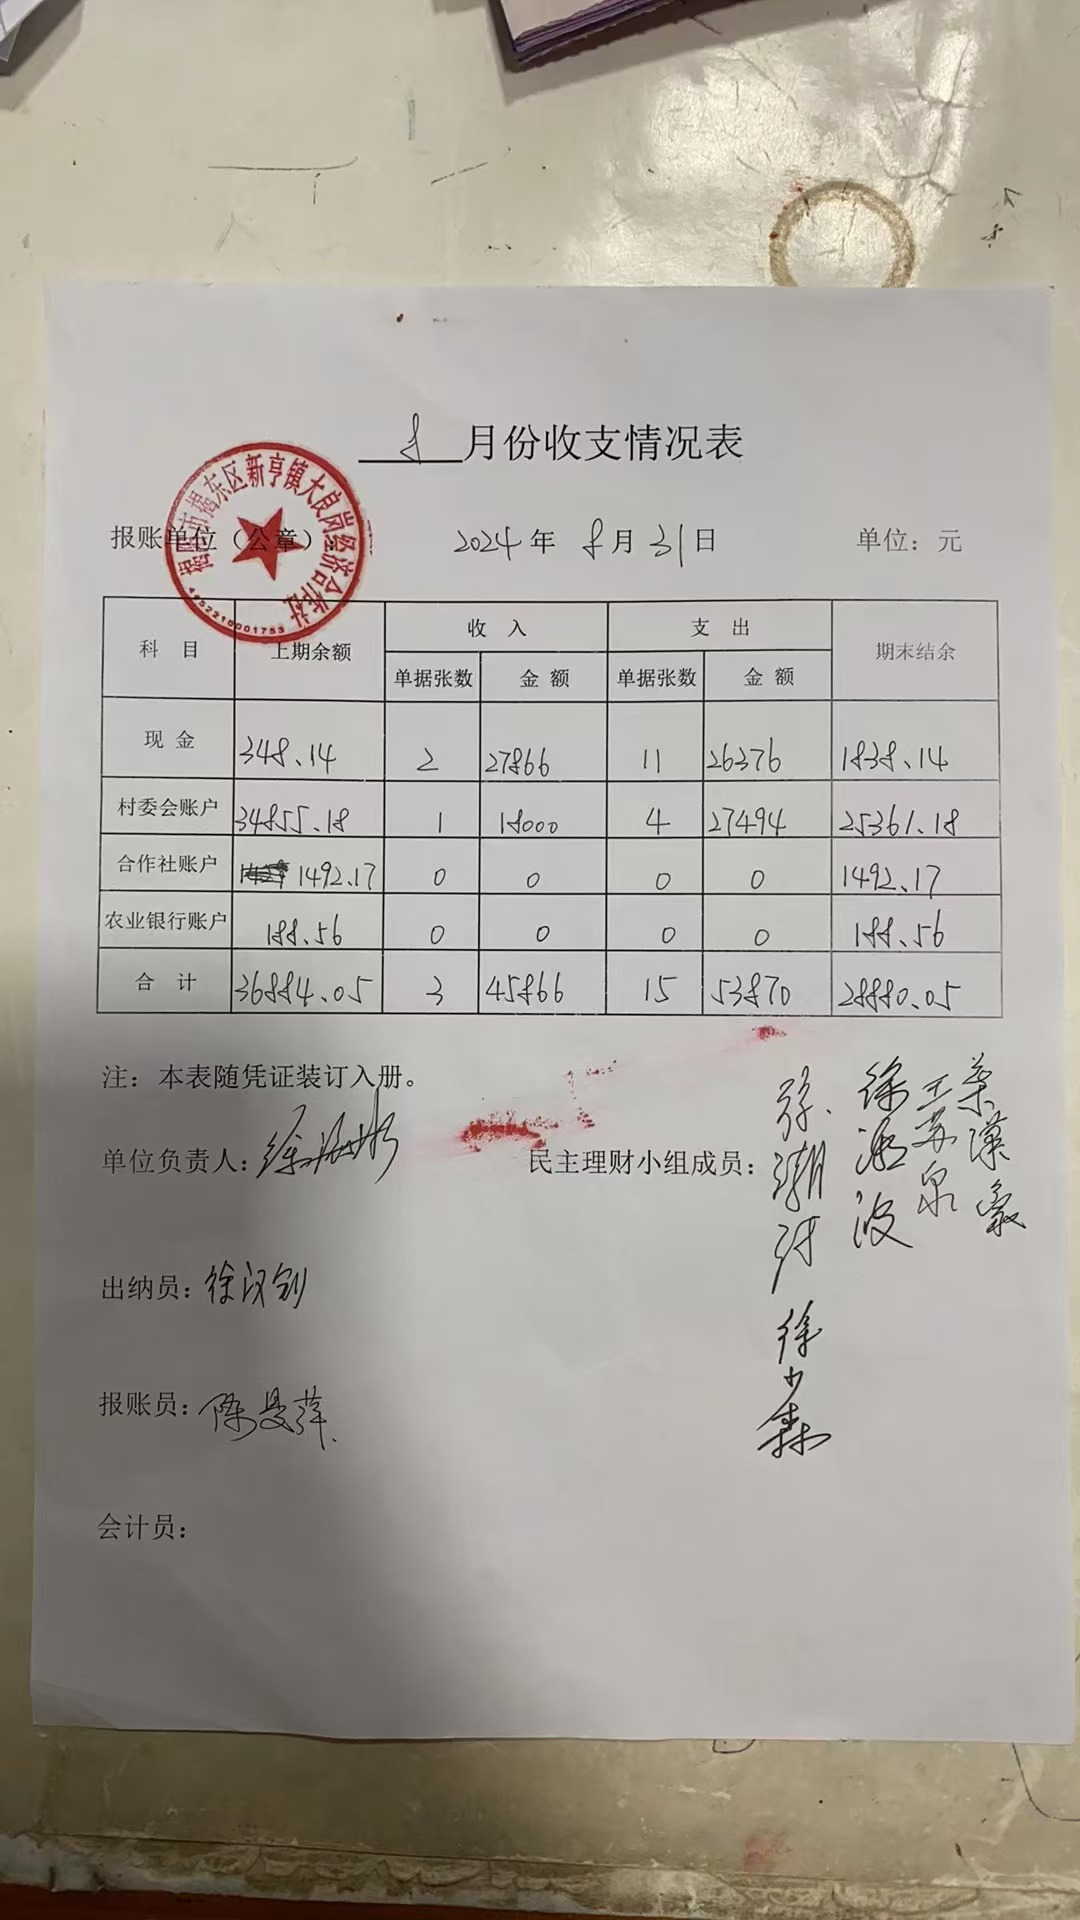 8月份收支情况表
揭阳市揭东区新亨镇大良岗经济合作社
4452210001753
报账单位（公章）：
2024年 8月31日
单位：元
科 目 上期余额 收 入 支 出 期末结余
单据张数 金 额 单据张数 金 额
现 金 348.14 2 27866 11 26376 1838.14
村委会账户 34855.18 1 18000 4 27494 25361.18
合作社账户 1492.17 0 0 0 0 1492.17
农业银行账户 188.56 0 0 0 0 188.56
合 计 36884.05 3 45866 15 53870 28880.05
注：本表随凭证装订入册。
单位负责人：徐
民主理财小组成员：
徐少霖
出纳员：徐汉钊
报账员：陈
会计员：